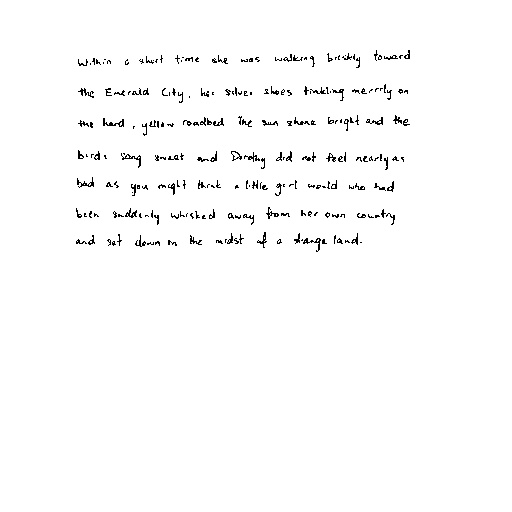 Within a short time she was walking briskly toward
the Emerald City, her silver shoes tinkling merrily on
the hard, yellow roadbed The sun shone bright and the
birds sang sweet and Dorothy did not feel nearly as
bad as you might think a little girl would who had
been suddenly whisked away from her own country
and set down in the midst of a strange land.